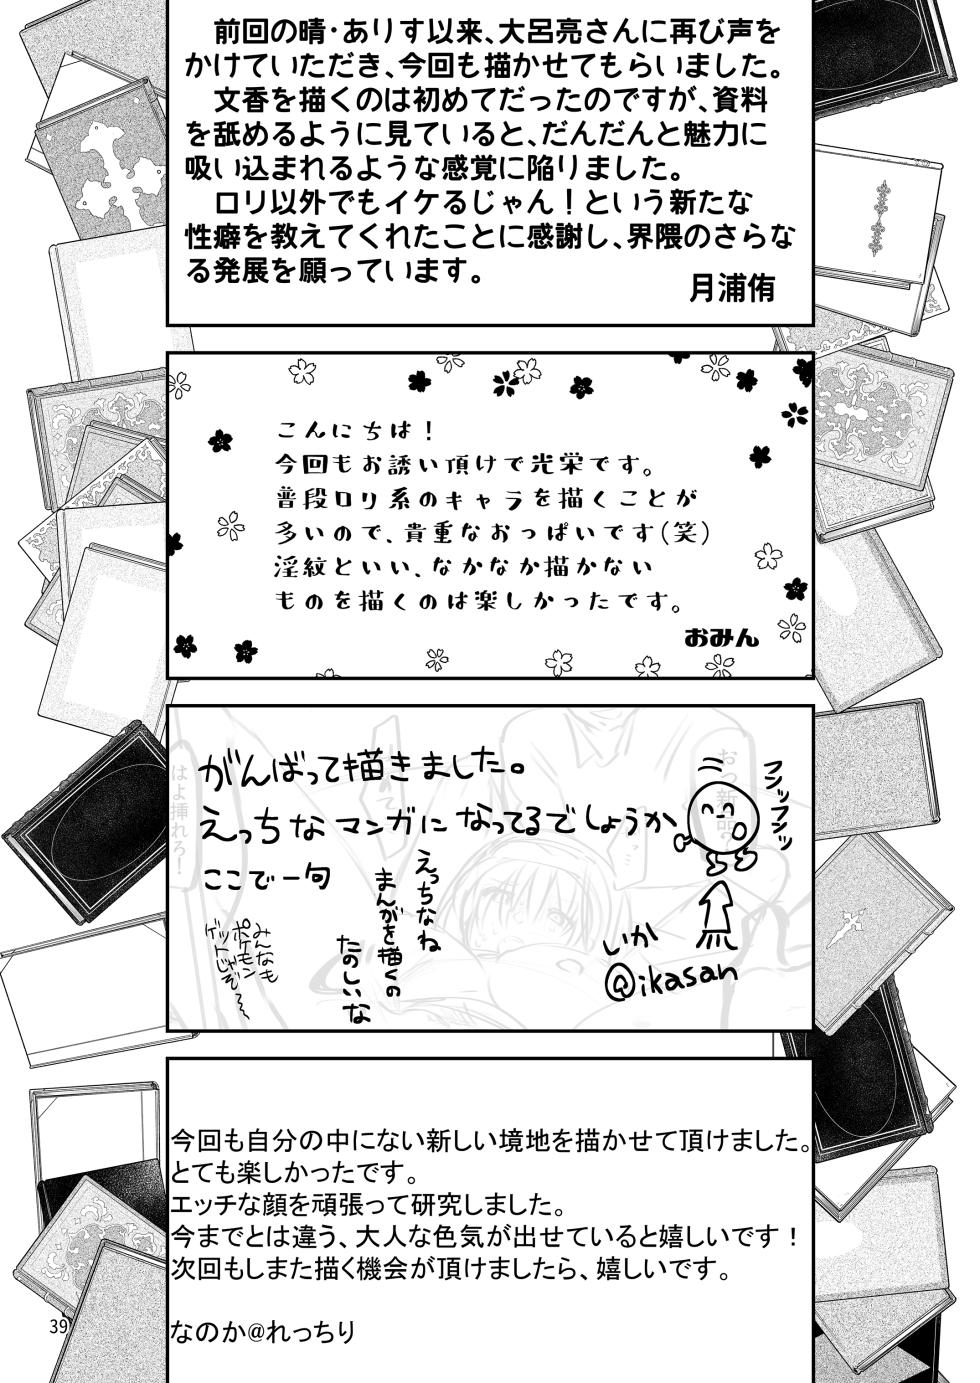 前回の晴・ありす以来、大呂亮さんに再び声を
かけていただき、今回も描かせてもらいました。
文香を描くのは初めてだったのですが、資料
を舐めるように見ていると、だんだんと魅力に
吸い込まれるような感覚に陥りました。
ロリ以外でもイケるじゃん！という新たな
性癖を教えてくれたことに感謝し、界隈のさらな
る発展を願っています。
月浦侑
こんにちは！
今回もお誘い頂けて光栄です。
普段ロリ系のキャラを描くことが
多いので、貴重なおっぱいです(笑)
淫紋といい、なかなか描かない
ものを描くのは楽しかったです。
おみん
がんばって描きました。
えっちなマンガになってるでしょうか
ここで一句
えっちなね
まんがを描くの
たのしいな
みんなも
ポケモン
ゲットじゃぞ～
フンッフンッ
いか
@ikasan
はよ挿れろ！
今回も自分の中にない新しい境地を描かせて頂けました。
とても楽しかったです。
エッチな顔を頑張って研究しました。
今までとは違う、大人な色気が出せていると嬉しいです！
次回もしまた描く機会が頂けましたら、嬉しいです。
なのか@れっちり
39